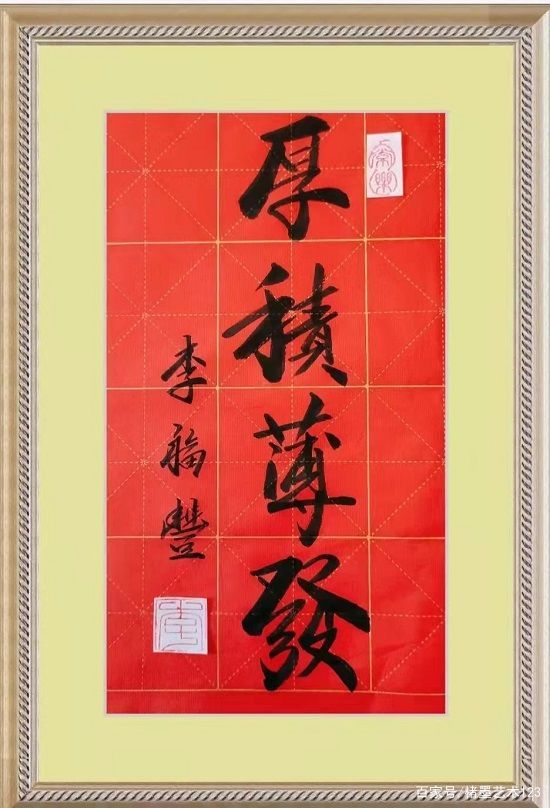 厚積薄發
李福豐
百家号/楮墨艺术123